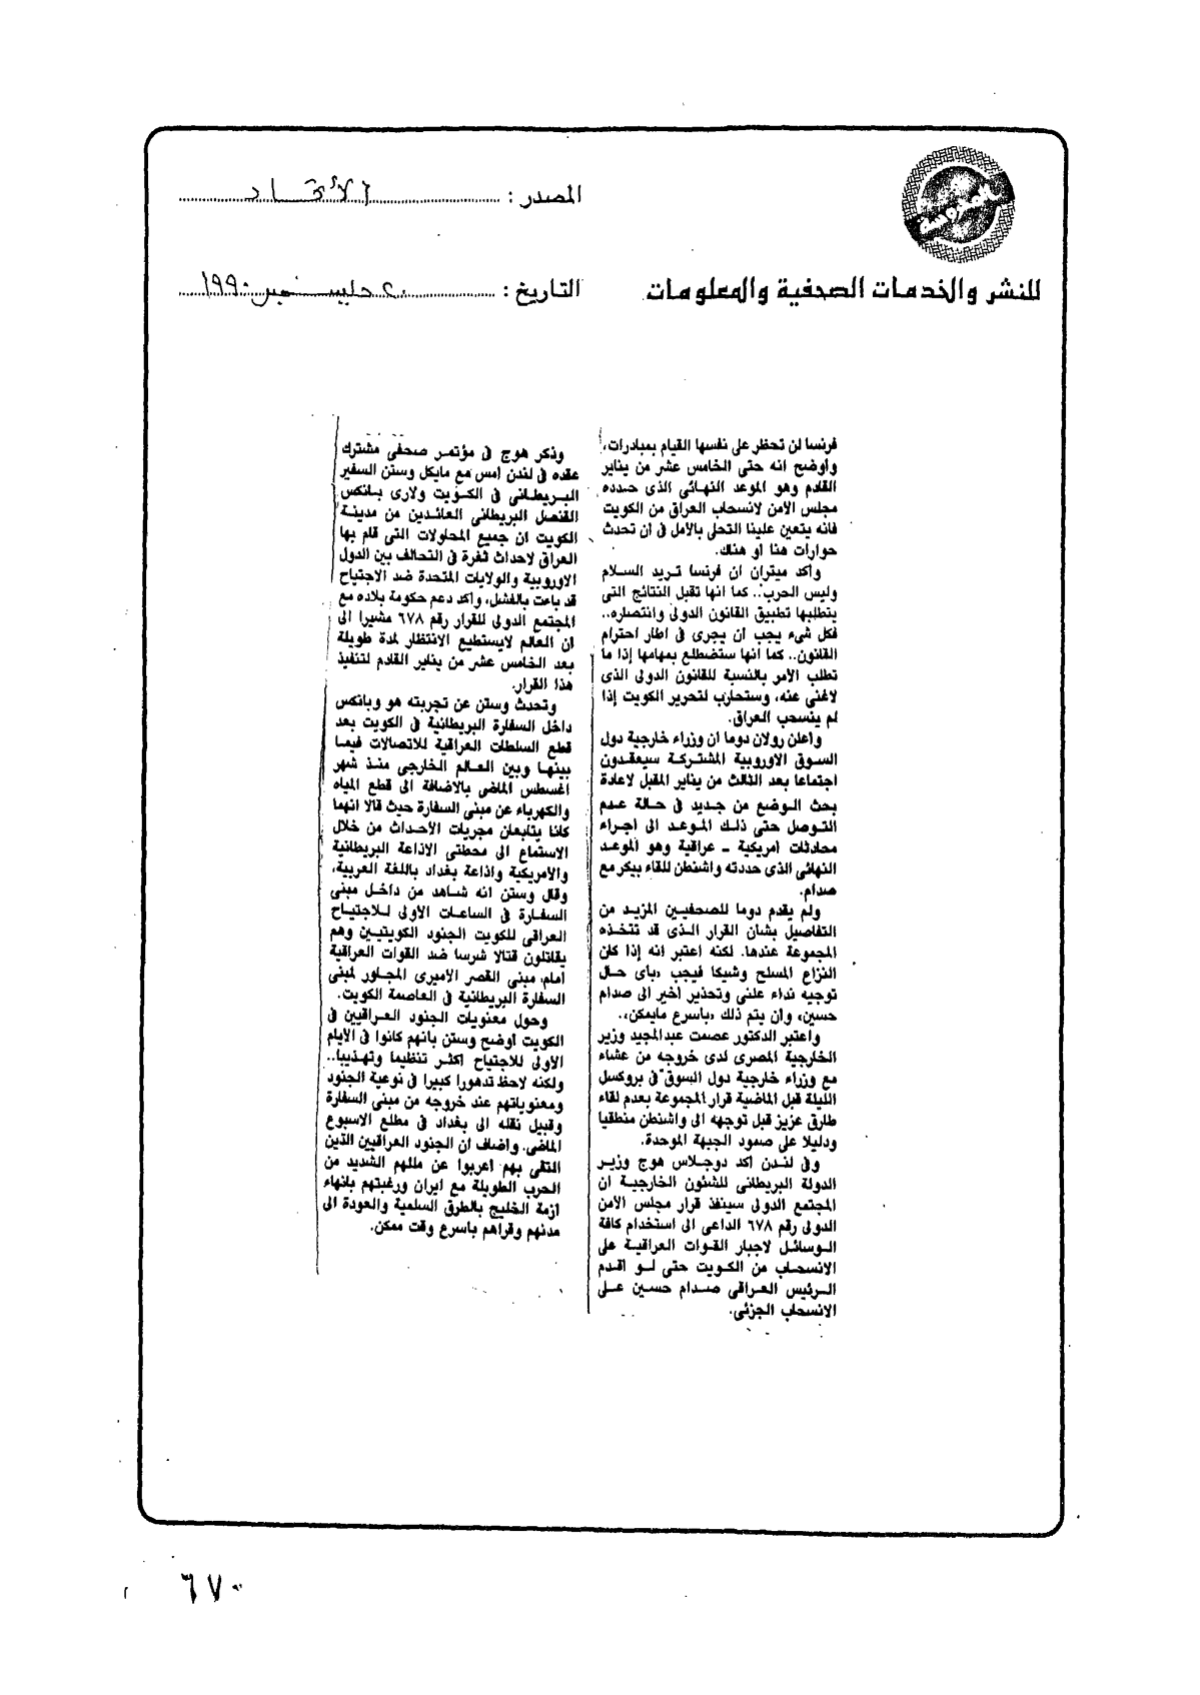 المحروسة
للنشر والخدمات الصحفية والمعلومات
المصدر : الاتحاد
التاريخ : ٢٠ ديسمبر ١٩٩٠
فرنسا لن تحظر على نفسها القيام بمبادرات،
وأوضح انه حتى الخامس عشر من يناير
القادم وهو الموعد النهائى الذى حدده
مجلس الأمن لانسحاب العراق من الكويت
فانه يتعين علينا التحلى بالأمل فى ان تحدث
حوارات هنا او هناك.
وأكد ميتران ان فرنسا تريد السلام
وليس الحرب.. كما انها تقبل النتائج التى
يتطلبها تطبيق القانون الدولى وانتصاره..
فكل شىء يجب ان يجرى فى اطار احترام
القانون.. كما انها ستضطلع بمهامها إذا ما
تطلب الأمر بالنسبة للقانون الدولى الذى
لاغنى عنه، وستحارب لتحرير الكويت إذا
لم ينسحب العراق.
وأعلن رولان دوما ان وزراء خارجية دول
السوق الاوروبية المشتركة سيعقدون
اجتماعا بعد الثالث من يناير المقبل لاعادة
بحث الوضع من جديد فى حالة عدم
التوصل حتى ذلك الموعد الى اجراء
محادثات أمريكية ـ عراقية وهو الموعد
النهائى الذى حددته واشنطن للقاء بيكر مع
صدام.
ولم يقدم دوما للصحفيين المزيد من
التفاصيل بشأن القرار الذى قد تتخذه
المجموعة عندها. لكنه اعتبر انه إذا كان
النزاع المسلح وشيكا فيجب «بأى حال
توجيه نداء علنى وتحذير أخير الى صدام
حسين، وان يتم ذلك «بأسرع مايمكن».
واعتبر الدكتور عصمت عبدالمجيد وزير
الخارجية المصرى لدى خروجه من عشاء
مع وزراء خارجية دول السوق فى بروكسل
الليلة قبل الماضية قرار المجموعة بعدم لقاء
طارق عزيز قبل توجهه الى واشنطن منطقيا
ودليلا على صمود الجبهة الموحدة.
وفى لندن أكد دوجلاس هوج وزير
الدولة البريطانى للشئون الخارجية ان
المجتمع الدولى سينفذ قرار مجلس الأمن
الدولى رقم ٦٧٨ الداعى الى استخدام كافة
الوسائل لاجبار القوات العراقية على
الانسحاب من الكويت حتى لو أقدم
الرئيس العراقى صدام حسين على
الانسحاب الجزئى.
وذكر هوج فى مؤتمر صحفى مشترك
عقده فى لندن أمس مع مايكل وستن السفير
البريطانى فى الكويت ولارى بانكس
القنصل البريطانى العائدين من مدينة
الكويت ان جميع المحاولات التى قام بها
العراق لاحداث ثغرة فى التحالف بين الدول
الاوروبية والولايات المتحدة ضد الاجتياح
قد باءت بالفشل، وأكد دعم حكومة بلاده مع
المجتمع الدولى للقرار رقم ٦٧٨ مشيرا الى
ان العالم لايستطيع الانتظار لمدة طويلة
بعد الخامس عشر من يناير القادم لتنفيذ
هذا القرار.
وتحدث وستن عن تجربته هو وبانكس
داخل السفارة البريطانية فى الكويت بعد
قطع السلطات العراقية للاتصالات فيما
بينها وبين العالم الخارجى منذ شهر
أغسطس الماضى بالاضافة الى قطع المياه
والكهرباء عن مبنى السفارة حيث قالا انهما
كانا يتابعان مجريات الأحداث من خلال
الاستماع الى محطتى الاذاعة البريطانية
والأمريكية واذاعة بغداد باللغة العربية،
وقال وستن انه شاهد من داخل مبنى
السفارة فى الساعات الاولى للاجتياح
العراقى للكويت الجنود الكويتيين وهم
يقاتلون قتالا شرسا ضد القوات العراقية
أمام مبنى القصر الأميرى المجاور لمبنى
السفارة البريطانية فى العاصمة الكويت.
وحول معنويات الجنود العراقيين فى
الكويت أوضح وستن بأنهم كانوا فى الأيام
الاولى للاجتياح أكثر تنظيما وتهذيبا..
ولكنه لاحظ تدهورا كبيرا فى نوعية الجنود
ومعنوياتهم عند خروجه من مبنى السفارة
وقبيل نقله الى بغداد فى مطلع الاسبوع
الماضى. وأضاف ان الجنود العراقيين الذين
التقى بهم أعربوا عن مللهم الشديد من
الحرب الطويلة مع ايران ورغبتهم بانهاء
أزمة الخليج بالطرق السلمية والعودة الى
مدنهم وقراهم بأسرع وقت ممكن.
٦٧٠